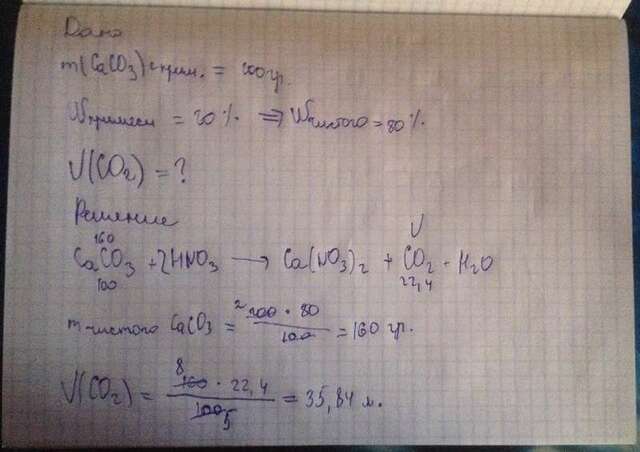 Дано
m(CaCO3) с прим. = 200 гр.
Wпримеси = 20% ⇒ Wчистого = 80%
V(CO2) = ?
Решение
160 V
CaCO3 + 2HNO3 → Ca(NO3)2 + CO2 - H2O
100 22,4
m чистого CaCO3 = 2 200 · 80 / 100 = 160 гр.
V(CO2) = 8 160 · 22,4 / 100 5 = 35,84 л.